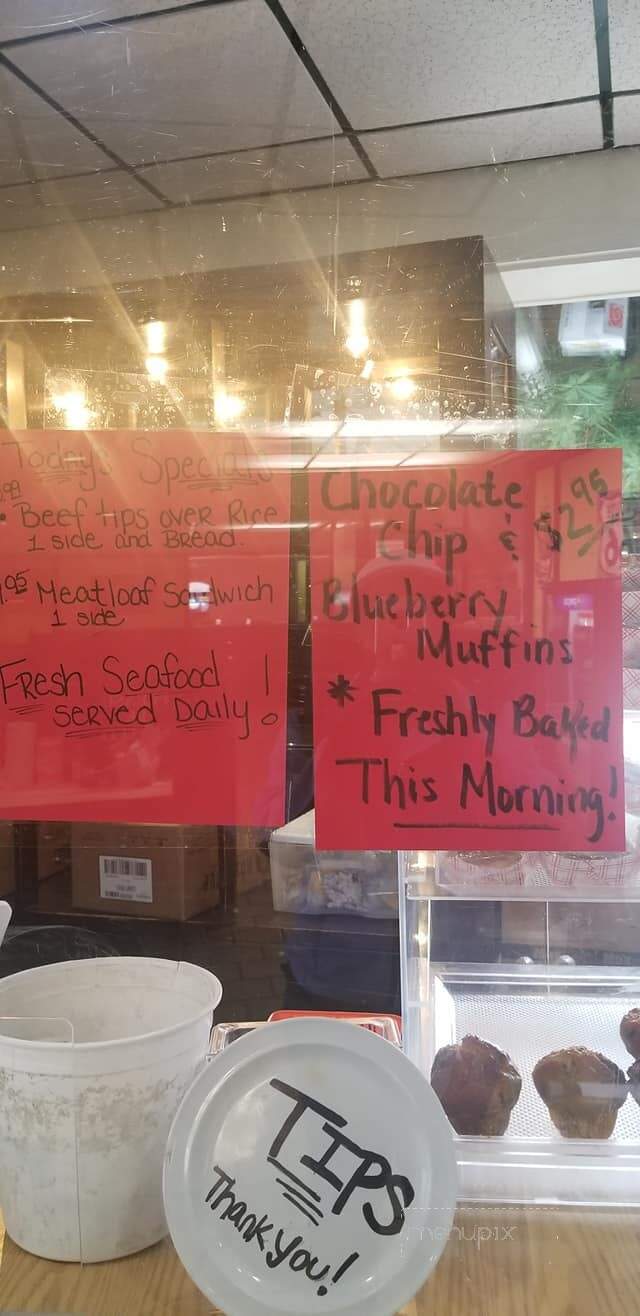 Today's Specials
.99
• Beef tips over Rice
1 side and Bread.
.95 Meatloaf Sandwich
1 side
Fresh Seafood
served Daily!
Chocolate
Chip & $2.95
Blueberry
Muffins
* Freshly Baked
This Morning!
TIPS
Thank you!
menupix